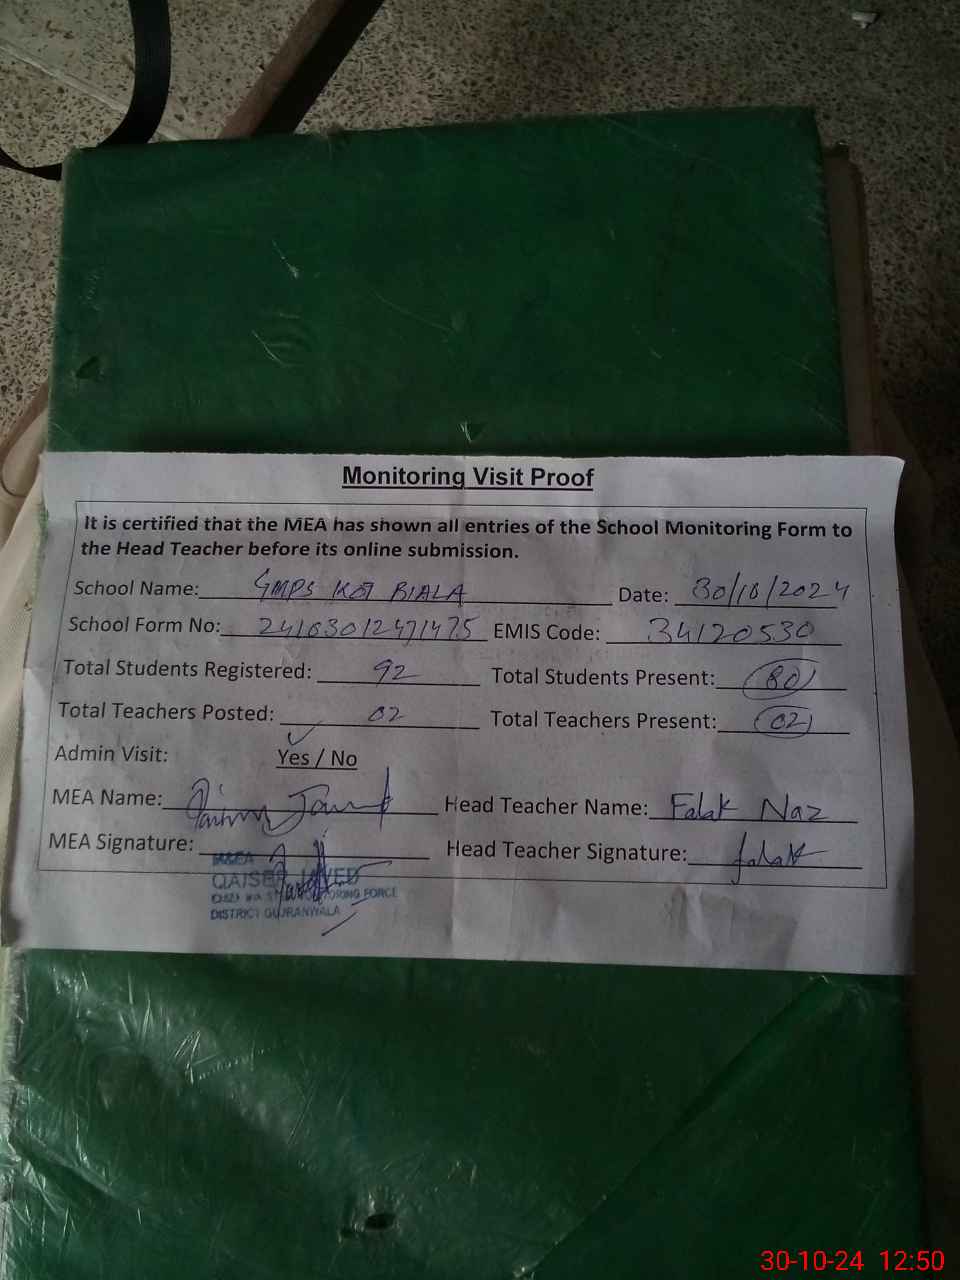 Monitoring Visit Proof
It is certified that the MEA has shown all entries of the School Monitoring Form to
the Head Teacher before its online submission.
School Name: GMPS KOT BIALA Date: 30/10/2024
School Form No: EMIS Code: 34120530
Total Students Registered: 92 Total Students Present: 80
Total Teachers Posted: 02 Total Teachers Present: 02
Admin Visit: Yes / No
MEA Name: Head Teacher Name: Falak Naz
MEA Signature: Head Teacher Signature: falak
M&EA
QAISER JAVED
MONITORING FORCE
DISTRICT GUJRANWALA
30-10-24 12:50